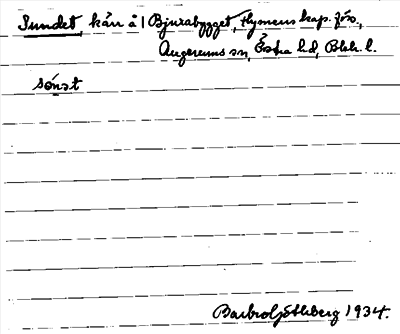 Sundet, kärr å 1 Bjurabygget, Flymens kap. förs.,
Augerums sn, Östra hd, Blek. l.
sónst
Barbro Söderberg 1934.